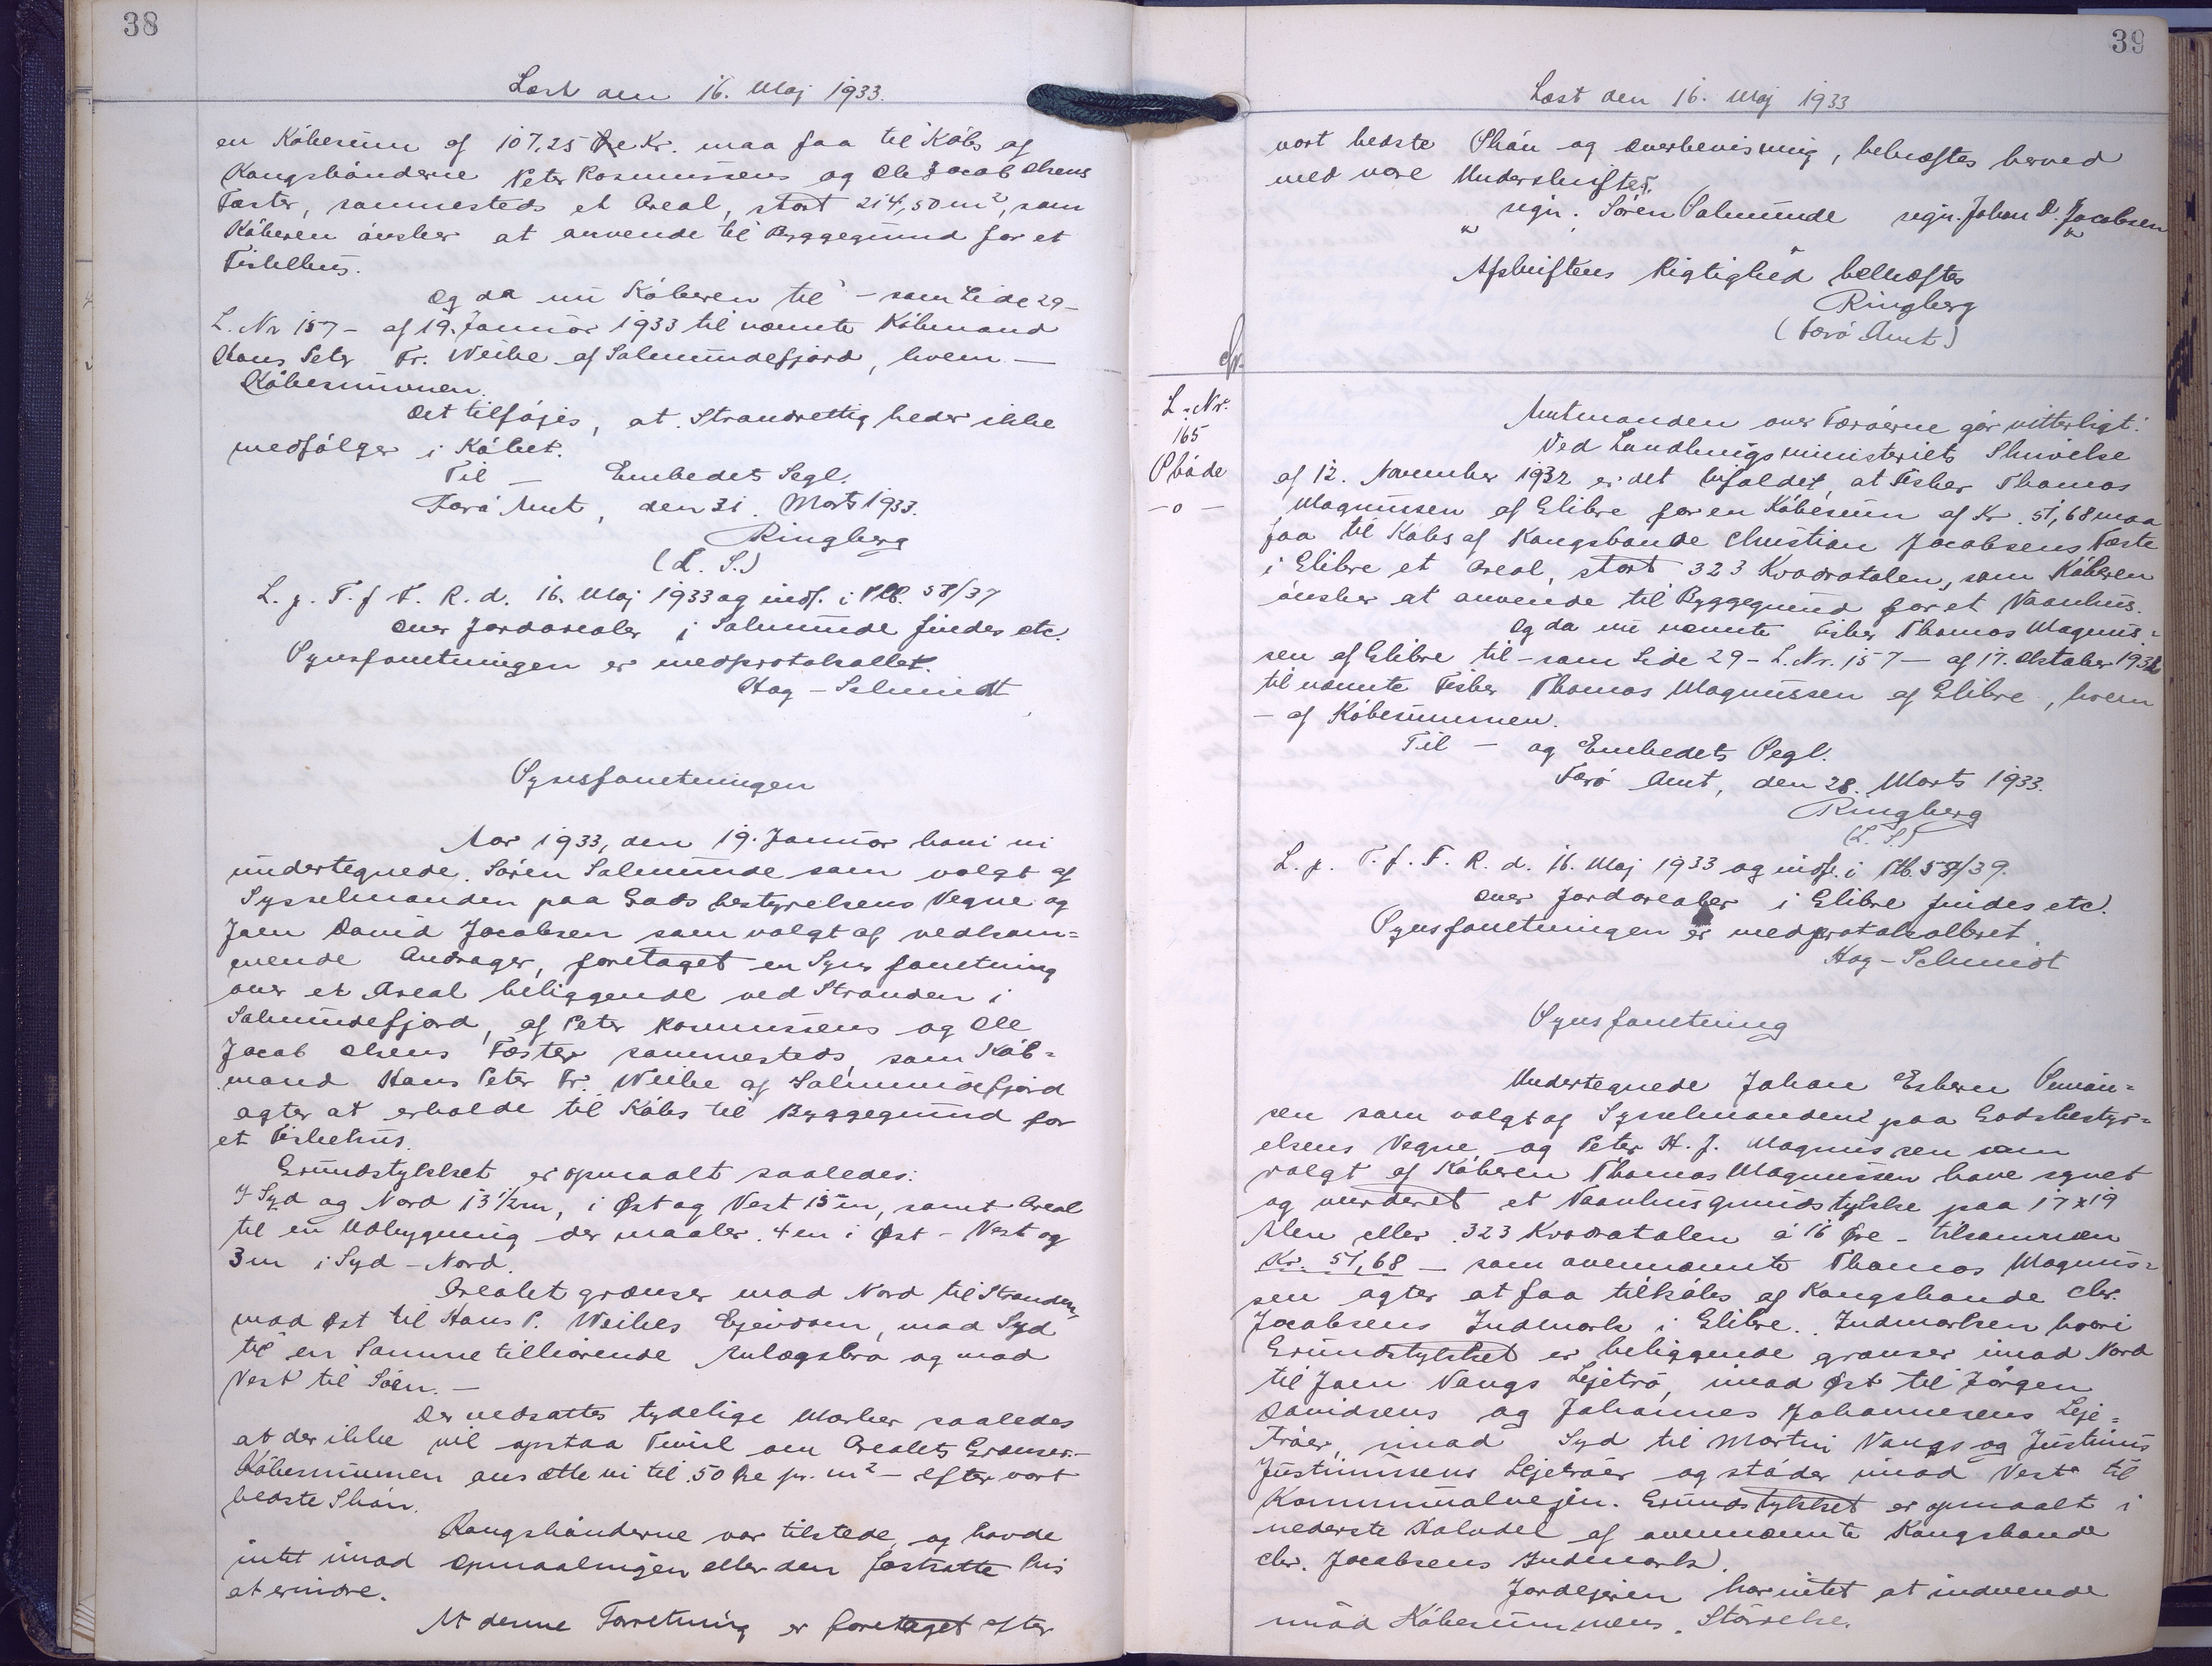 38
Læst den 16. Maj 1933.
en Købesum af 107,25 Kr. maa faa til Købs af
Kongsbønderne Peter Rasmussens og Ole Jacob Olsens
Fæster, sammesteds et Areal, stort 214,50 m², som
Køberen ønsker at anvende til Byggegrund for et
Fiskehus.
Og da nu Køberen til - som Side 29 -
L. Nr 157 - af 19. Januar 1933 til nævnte Købmand
Hans Peter Fr. Weihe af Salmundefjord, hvem -
Købesummen.
Det tilføjes, at Strandrettigheder ikke
medfølger i Købet.
Til - Embedets Segl.
Færø Amt, den 31. Marts 1933.
Ringberg
(L. S.)
L. p. T. f F. R. d. 16. Maj 1933 og indf. i Ptb. 58/37
over Jordarealer i Salmunde findes etc.
Synsforretningen er medprotokolleret.
Høg-Schmidt
Synsforretningen
Aar 1933, den 19. Januar have vi
undertegnede Søren Salmunde som valgt af
Sysselmanden paa Godsbestyrelsens Vegne og
Joen David Jacobsen som valgt af vedkom=
mende Andrager, foretaget en Synsforretning
over et Areal beliggende ved Stranden i
Salmundefjord, af Peter Rasmussens og Ole
Jacob Olsens Fæster sammesteds, som Køb=
mand Hans Peter Fr. Weihe af Salmundefjord
agter at erholde til Købs til Byggegrund for
et Fiskehus.
Grundstykket er opmaalt saaledes:
I Syd og Nord 13½ m, i Øst og Vest 15 m, samt Areal
til en Udbygning der maaler 4 m i Øst - Vest og
3 m i Syd - Nord.
Arealet grænser mod Nord til Stranden,
mod Øst til Hans P. Weihes Ejendom, mod Syd
til en Samme tilhørende Anlægsbro og mod
Vest til Søen. -
Der nedsattes tydelige Mærker saaledes
at der ikke vil opstaa Tvivl om Arealets Grænser. -
Købesummen ansætte vi til 50 Øre pr. m² - efter vort
bedste Skøn.
Kongsbønderne var tilstede og havde
intet imod Opmaalingen eller den fastsatte Pris
at erindre.
At denne Forretning er foretaget efter
39
Læst den 16. Maj 1933
vort bedste Skøn og Overbevisning, bekræftes herved
med vore Underskrifter.
sign. Søren Salmunde sign. Johan D. Jacobsen
Afskriftens Rigtighed bekræftes
Ringberg
(Færø Amt)
L. Nr.
165
Skøde
- o -
Amtmanden over Færøerne gør vitterligt:
Ved Landbrugsministeriets Skrivelse
af 12. November 1932 er det bifaldet, at Fisker Thomas
Magnussen af Glibre for en Købesum af Kr. 51,68 maa
faa til Købs af Kongsbonde Christian Jacobsens Fæste
i Glibre et Areal, stort 323 Kvadratalen, som Køberen
ønsker at anvende til Byggegrund for et Vaanhus.
Og da nu nævnte Fisker Thomas Magnus=
sen af Glibre til - som Side 29 - L. Nr. 157 - af 17. Oktober 1932
til nævnte Fisker Thomas Magnussen af Glibre, hvem
- af Købesummen.
Til - og Embedets Segl.
Færø Amt, den 28. Marts 1933.
Ringberg
(L. S.)
L. p. T. f. F. R. d. 16. Maj 1933 og indf. i Ptb. 58/39.
over Jordarealer i Glibre findes etc.
Synsforretningen er medprotokolleret.
Høg-Schmidt
Synsforretning
Undertegnede Johan Esbern Simon=
sen som valgt af Sysselmanden paa Godsbestyr=
elsens Vegne og Peter H. J. Magnussen som
valgt af Køberen Thomas Magnussen have synet
og vurderet et Vaanhusgrundstykke paa 17 x 19
Alen eller 323 Kvadratalen à 16 Øre - tilsammen
Kr. 51,68 - som ovennævnte Thomas Magnus=
sen agter at faa tilkøbs af Kongsbonde Chr.
Jacobsens Indmark i Glibre. Indmarken hvori
Grundstykket er beliggende grænser imod Nord
til Joen Vangs Lejetrø, imod Øst til Jørgen
Davidsens og Johannes Johannesens Leje=
trøer, imod Syd til Martin Vangs og Justinus
Justinussens Lejetrøer og støder imod Vest til
Kommunalvejen. Grundstykket er opmaalt i
nederste Halvdel af ovennævnte Kongsbonde
Chr. Jacobsens Indmark.
Jordejeren har intet at indvende
imod Købesummens Størrelse.